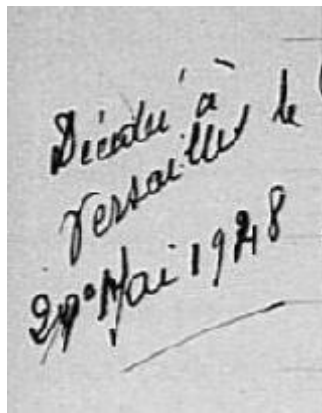 Décédé à
Versailles le
Mai 1948